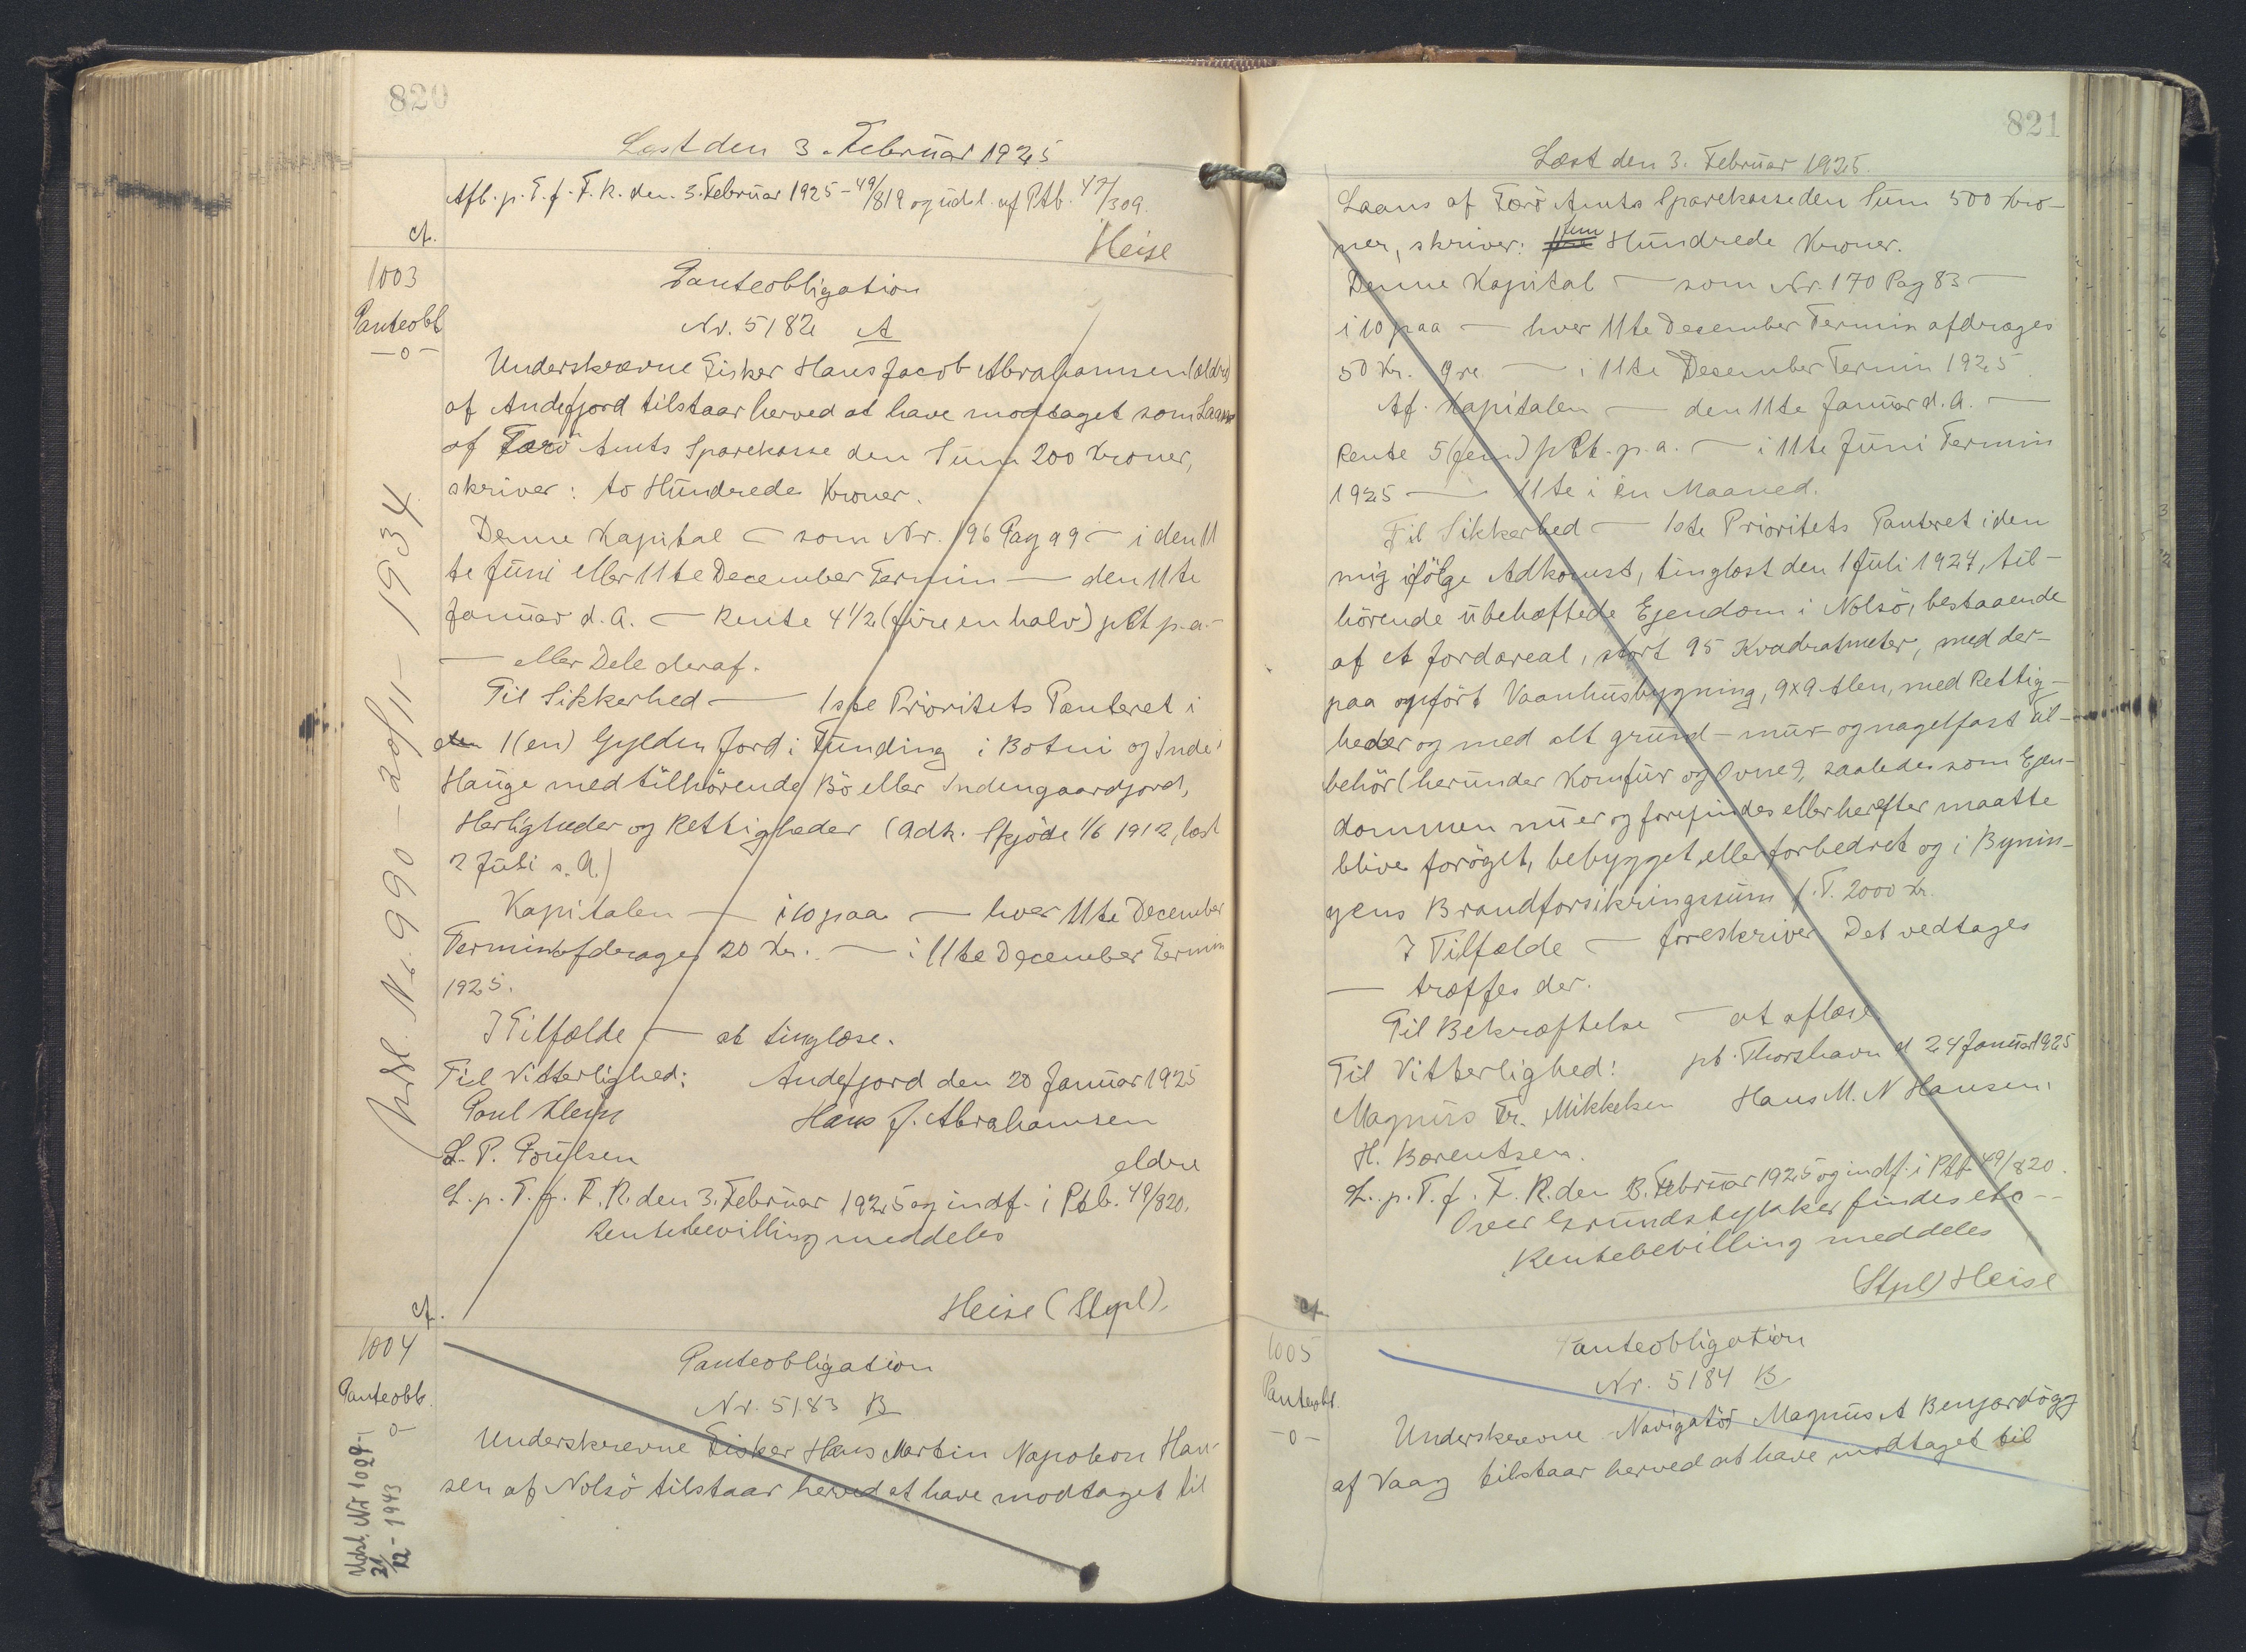 820
Læst den 3. Februar 1925
Afl. p. T. f. F. R. den 3. Februar 1925 - 49/819 og udsl. af Ptb. 47/309.
cf.
Heise
1003
Panteobl
-o-
Panteobligation
Nr. 5182 A
Underskrevne Fisker Hans Jacob Abrahamsen (ældre)
af Andefjord tilstaar herved at have modtaget som Laan
af Færö Amts Sparekasse den Sum 200 Kroner,
skriver: to Hundrede Kroner.
Denne Kapital — som Nr. 196 Pag 99 — i den 11
te Juni eller 11te December Termin — den 11te
Januar d. A. — Rente 4 1/2 (fire en halv) pCt p.a. -
— eller Dele deraf.
Til Sikkerhed — 1ste Prioritets Panteret i
den 1 (en) Gylden Jord i Funding i Botni og Inde i
Hauge med tilhörende Bö eller Indengaardjord,
Herligheder og Rettigheder (Adk. Skjöde 1/6 1912, læst
2 Juli s. A.)
Kapitalen — i 10 paa — hver 11te December
Termin afdrages 20 Kr. — i 11te December Termin
1925.
I Tilfælde — at tinglæse.
Til Vitterlighed: Andefjord den 20 Januar 1925
Poul Klein Hans J. Abrahamsen
L. P. Poulsen ældre
L. p. T. f. F. R. den 3. Februar 1925 og indf. i Ptb. 49/820.
Rentebevilling meddeles
Heise (Stpl).
cf.
Udsl. Nr. 990 - 20/11 - 1934
1004
Panteobl.
-o-
Panteobligation
Nr. 5183 B
Underskrevne Fisker Hans Martin Napoleon Han-
sen af Nolsö tilstaar herved at have modtaget til
Udsl. Nr 1097
21/12 - 1943
821
Læst den 3. Februar 1925.
Laans af Færö Amts Sparekasse den Sum 500 Kro-
ner, skriver: fem Hundrede Kroner.
Denne Kapital — som Nr. 170 Pag 83 —
i 10 paa — hver 11te December Termin afdrages
50 Kr. Ore — i 11te December Termin 1925.
Af Kapitalen — den 11te Januar d. A. —
Rente 5 (fem) pCt. p.a. — i 11te Juni Termin
1925 — 11te i en Maaned.
Til Sikkerhed — 1ste Prioritets Panteret i den
mig ifölge Adkomst, tinglæst den 1 Juli 1924, til-
hörende ubehæftede Ejendom i Nolsö, bestaaende
af et Jordareal, stort 95 Kvadratmeter, med der-
paa opfört Vaanhusbygning, 9x9 Alen, med Rettig-
heder og med alt grund- mur- og nagelfast Til-
behör (herunder Komfur og Ovne), saaledes som Ejen-
dommen nu er og forefindes eller herefter maatte
blive foröget, bebygget eller forbedret og i Bynin-
gens Brandforsikringssum f. T. 2000 Kr.
I Tilfælde — foreskriver Det vedtages
— træffes der.
Til Bekræftelse — at aflæse.
Til Vitterlighed: pt. Thorshavn d 24 Januar 1925
Magnus Fr. Mikkelsen Hans M. N Hansen.
H. Berentsen.
L. p. T. f. F. R. den 3. Februar 1925 og indf. i Ptb 49/820.
Over Grundstykker findes etc --
Rentebevilling meddeles
(Stpl) Heise
cf.
1005
Panteobl.
-o-
Panteobligation
Nr. 5184 B
Underskrevne Navigatör Magnus A Benjardögg
af Vaag tilstaar herved at have modtaget til